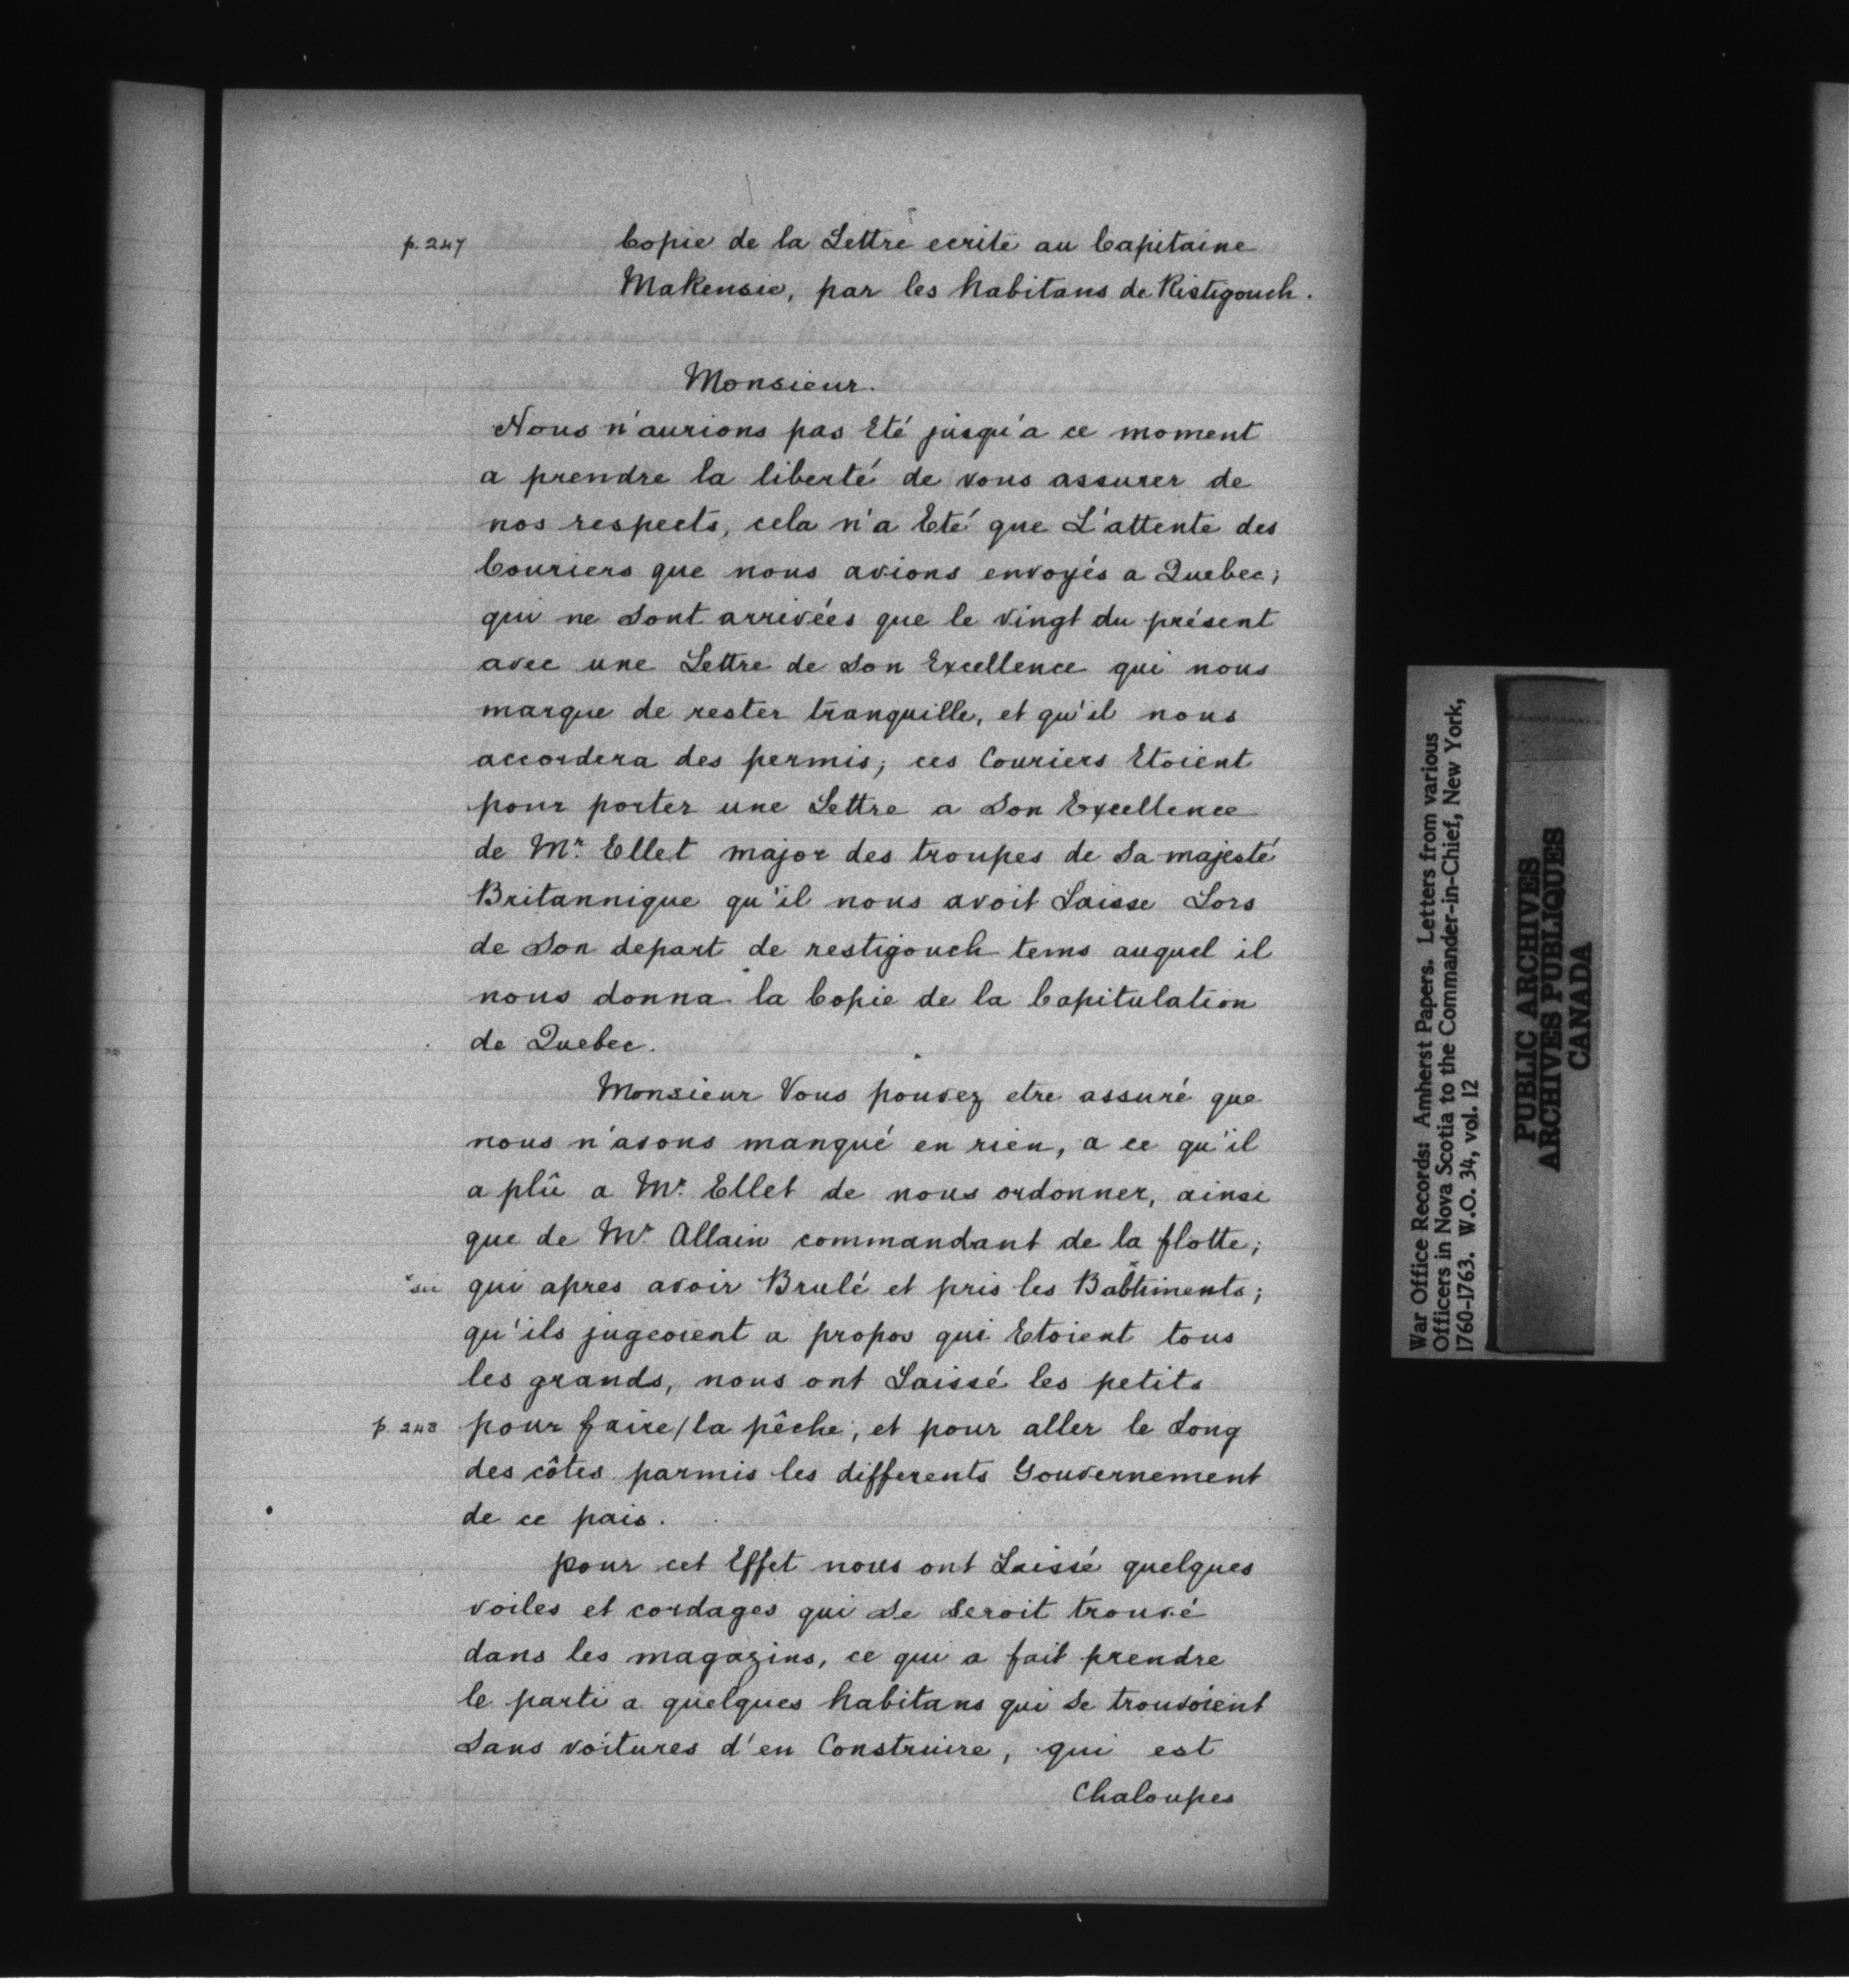 p. 247
Copie de la Lettre ecrite au Capitaine
Makensie, par les habitans de Ristigouch.
Monsieur.
Nous n'aurions pas Eté jusqu'a ce moment
a prendre la liberté de vous assurer de
nos respects, cela n'a Eté que L'attente des
Couriers que nous avions envoyés a Quebec;
qui ne Sont arrivées que le vingt du présent
avec une Lettre de Son Excellence qui nous
marque de rester tranquille, et qu'il nous
accordera des permis; ces Couriers Etoient
pour porter une Lettre a Son Excellence
de Mr. Ellet major des troupes de Sa majesté
Britannique qu'il nous avoit Laisse Lors
de Son depart de restigouch tems auquel il
nous donna la Copie de la Capitulation
de Quebec.
Monsieur Vous pouvez etre assuré que
nous n'avons manqué en rien, a ce qu'il
a plû a Mr. Ellet de nous ordonner, ainsi
que de Mr. Allain commandant de la flotte;
x sic qui apres avoir Brulé et pris les Babtiments x;
qu'ils jugeoient a propos qui Etoient tous
les grands, nous ont Laissé les petits
p. 248 pour faire/la pêche, et pour aller le Long
des côtes parmis les differents Gouvernement
de ce pais.
pour cet Effet nous ont Laissé quelques
voiles et cordages qui Se Seroit trouvé
dans les magazins, ce qui a fait prendre
le parti a quelques habitans qui Se trouvoient
Sans voitures d'en Construire, qui est
Chaloupes
War Office Records: Amherst Papers. Letters from various
Officers in Nova Scotia to the Commander-in-Chief, New York,
1760-1763. W.O. 34, vol. 12
PUBLIC ARCHIVES
ARCHIVES PUBLIQUES
CANADA